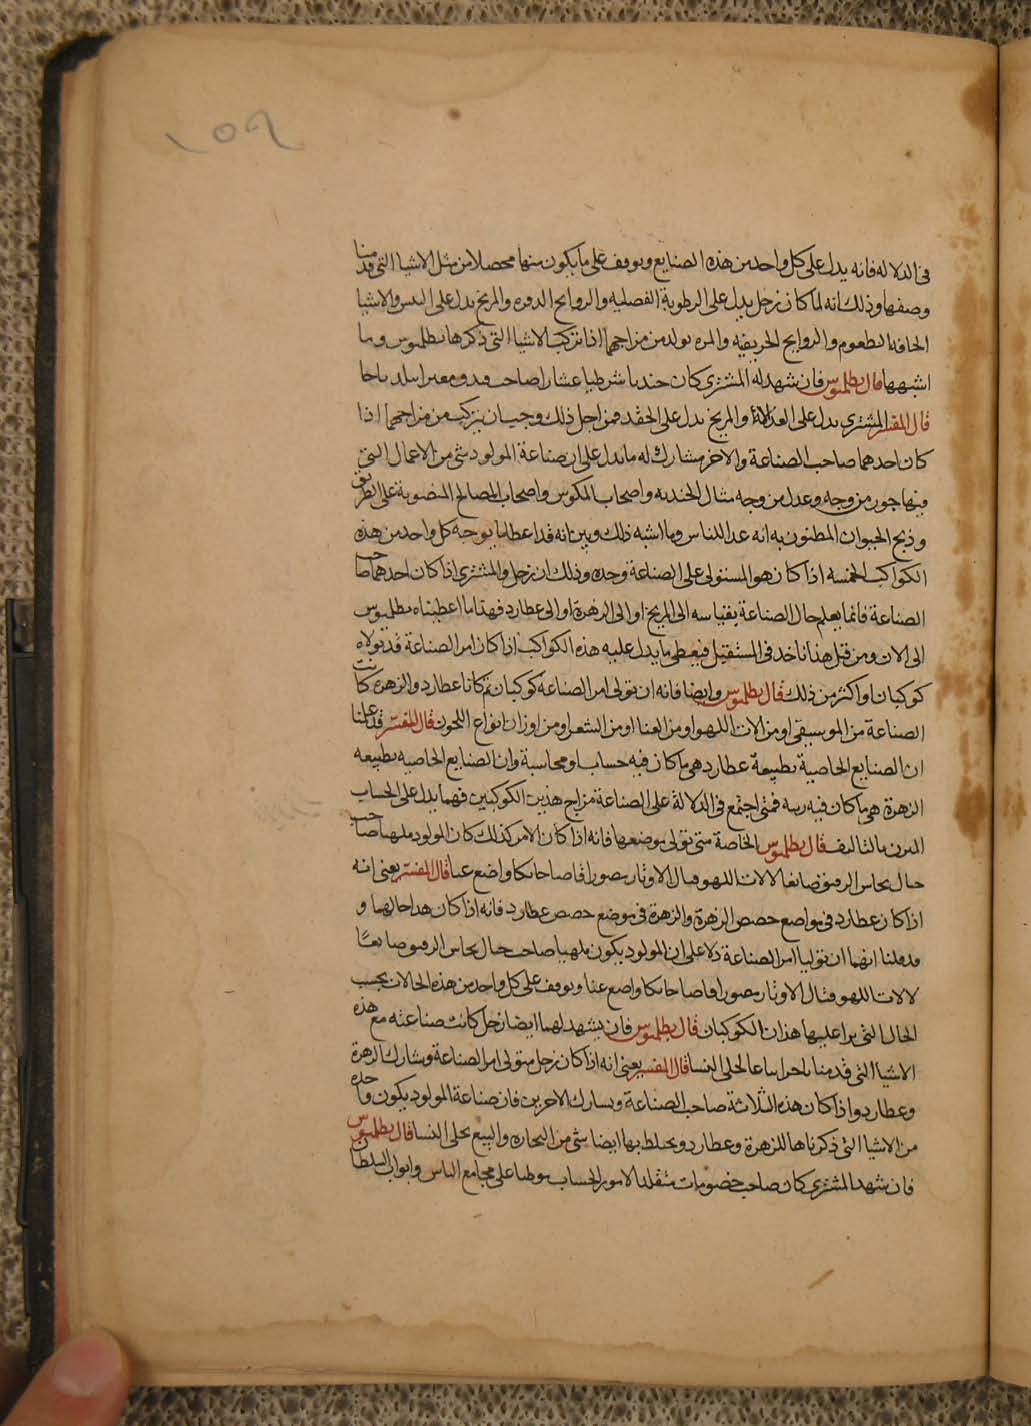 ١٥٩
فى الدلاله فانه يدل على كل واحد من هذه الصنايع ويوقف على ما يكون منها محصلا من مثل الاشيا التى قدمنا
وصفها وذلك انه لما كان زحل يدل على الرطوبة الفصليه والروايح الدفره والمريخ يدل على اليبس والاشيا
الحافه الطعوم والروايح الحريفيه والمره تولد من مزاجهما اذا تركب الاشيا التى ذكرها بطلميوس وما
اشبهها قال بطلميوس فان شهد له المشترى كان جنديا شرطيا عشارا صاحب
قال المفسر المشترى يدل على العدالة والمريخ يدل على الحقد فمن اجل ذلك وجب ان يتركب من مزاجهما اذا
كان احدهما صاحب الصناعة والاخر مشارك له ما يدل على ان صناعة المولود شى من الاعمال التى
فيها جور من وجه وعدل من وجه مثال الجنديه واصحاب المكوس واصحاب المصالح المنصوبة على الطريق
وذبح الحيوان المظنون به انه عدا للناس وما اشبه ذلك وبين انه قد اعطانا ما يوجبه كل واحد من هذه
الكواكب الخمسه اذا كان هو المستولى على الصناعة وحده وذلك ان زحل والمشترى اذا كان احدهما صاحب
الصناعة فانما يعلم حال الصناعة بقياسه الى المريخ او الى الزهرة او الى عطارد فهذا ما اعطيناه بطلميوس
الى الان ومن قبل هذا ناخذ فى المستقبل فيعطى ما يدل عليه هذه الكواكب اذا كان امر الصناعة قد تولاه
كوكبان او اكثر من ذلك قال بطلميوس وايضا فانه ان تولى امر الصناعة كوكبان ثم كانا عطارد والزهره كانت
الصناعة من الموسيقى او من الات اللهو او من الغنا او من الشعر او من اوزان انواع اللحون قال المفسر قد علمنا
ان الصنايع الخاصية بطبيعة عطارد هى ما كان فيه حساب او محاسبة وان الصنايع الخاصيه بطبيعه
الزهرة هى ما كان فيه زينه فمتى اجتمع فى الدلالة على الصناعة مزاج هذين الكوكبين فهما يدل على الحساب
المزين بالتاليف قال بطلميوس الخاصة متى تولى موضعها فانه اذا كان الامر كذلك كان المولود ملهيا صاحب
صانعا لالات اللهو الاوتار مصورا رقاصا حاكيا واضع غنا قال المفسر يعنى انه
اذا كان عطارد فى مواضع حصص الزهرة والزهرة فى موضع حصص عطارد فانه اذا كان هذا حالهما و
قد قلنا انهما ان توليا امر الصناعة دلا على ان المولود يكون ملهيا صاحب صانعا
لالات اللهو الاوتار مصورا رقاصا حاكيا واضع غنا ويوقف على كل واحد من هذه الحالات بحسب
الحال التى يرا عليها هذان الكوكبان قال بطلميوس فان يشهد لهما ايضا زحل كانت صناعته مع هذه
الاشيا التى قدمنا الحلى النسا قال المفسر يعنى انه اذا كان زحل متولى امر الصناعة ويشارك الزهرة
وعطارد واذا كان هذه الثلاثة صاحب الصناعة ويشارك الاخرين فان صناعة المولود يكون واحده
من الاشيا التى ذكرناها للزهرة وعطارد ويختلط بها ايضا شى من التجاره والبيع بحلى النسا قال بطلميوس
فان شهد المشترى كان صاحب خصومات متقلدا لامور الحساب على مجامع الناس وابواب السلطان